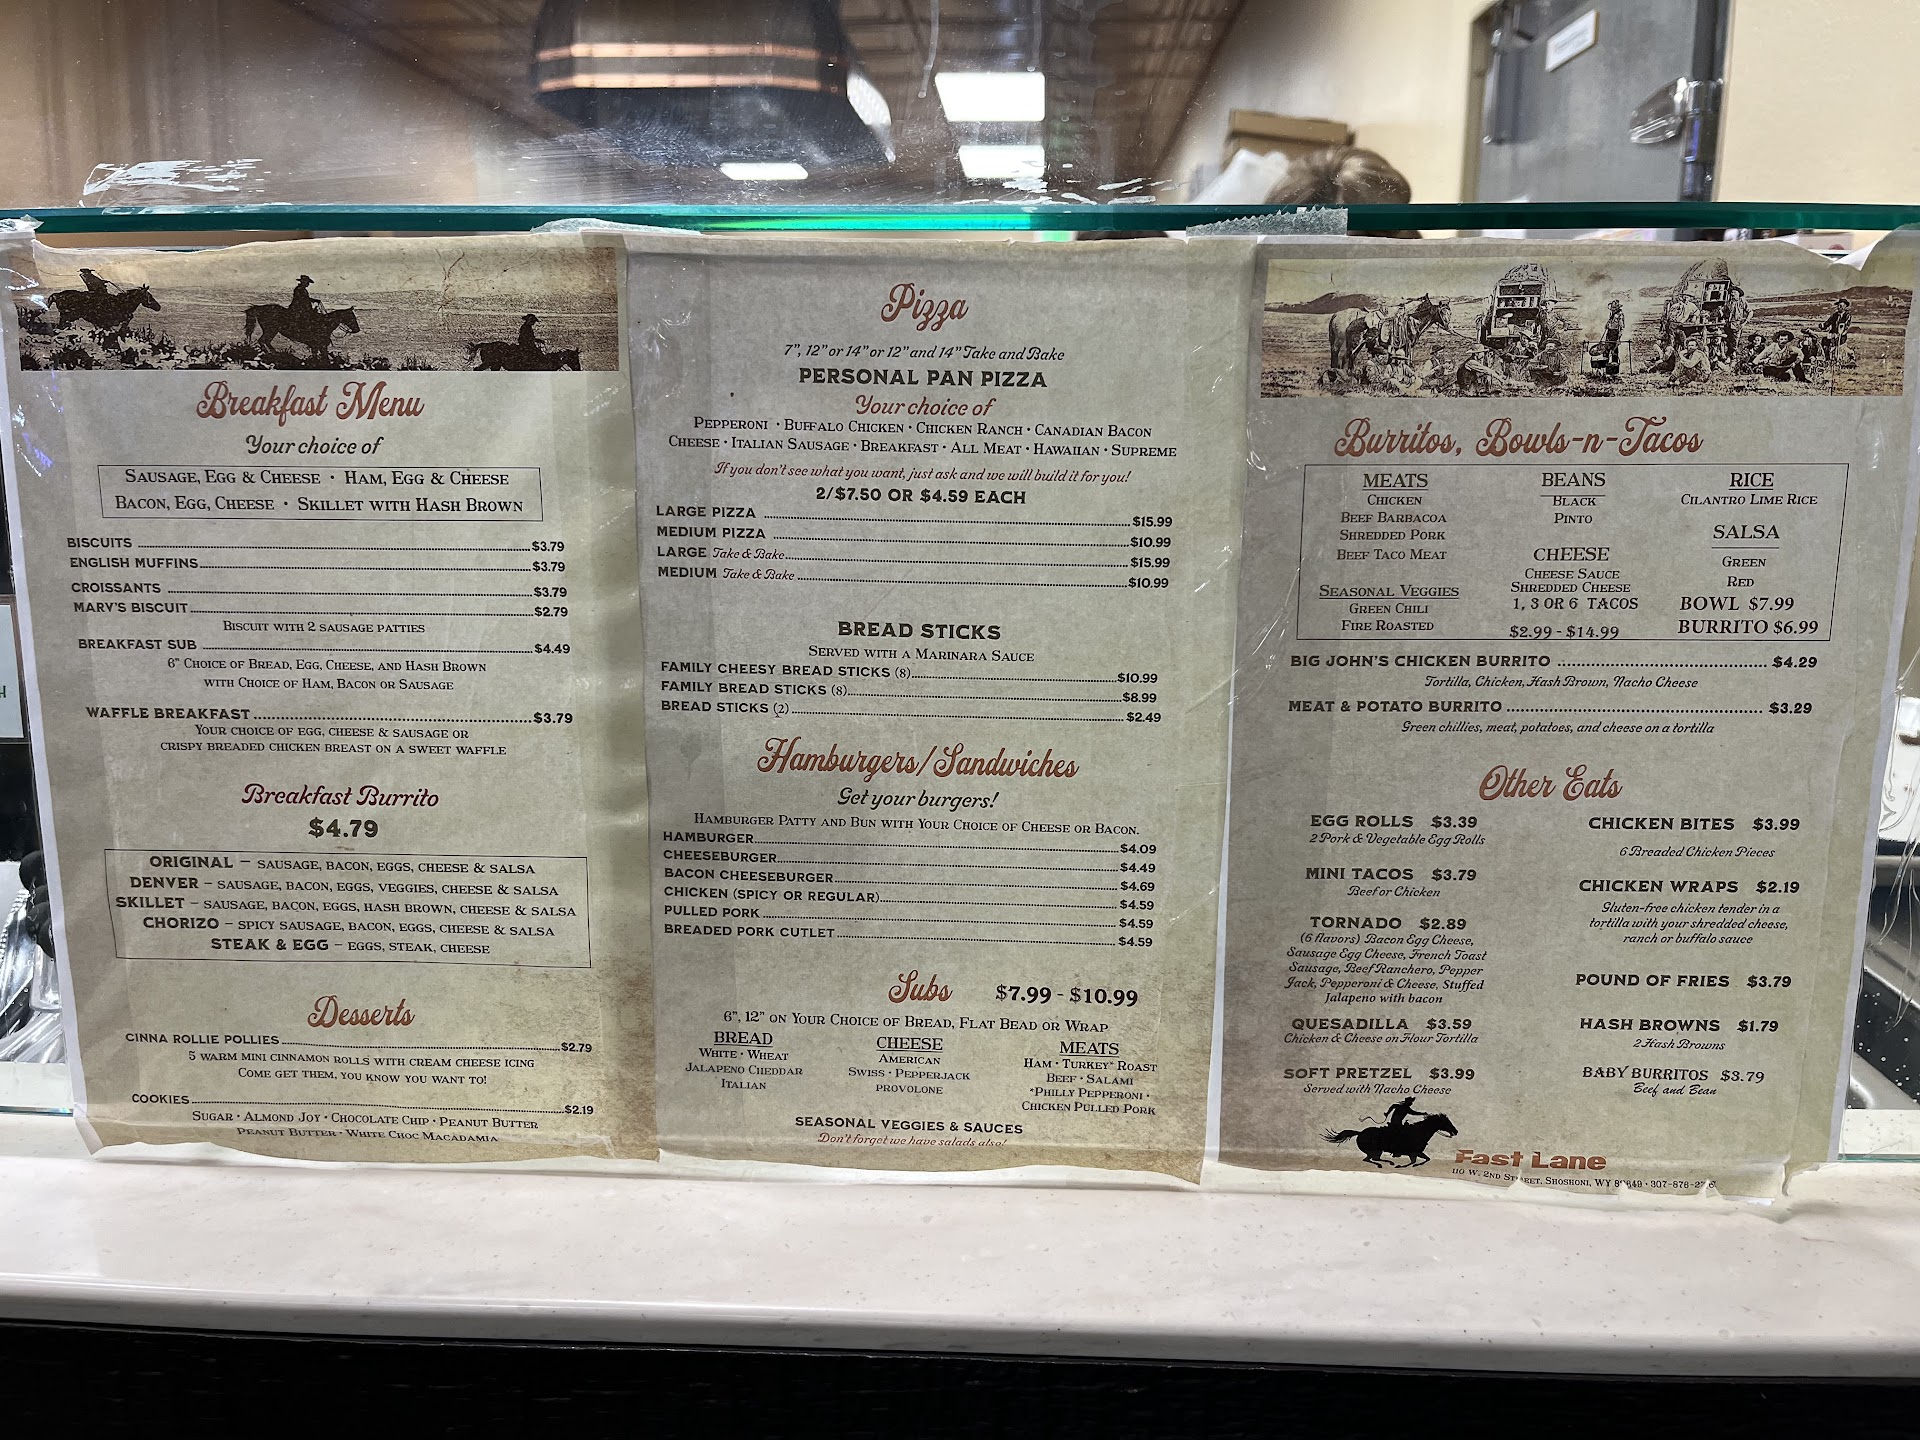 Breakfast Menu
Your choice of
SAUSAGE, EGG & CHEESE • HAM, EGG & CHEESE
BACON, EGG, CHEESE • SKILLET WITH HASH BROWN
BISCUITS $3.79
ENGLISH MUFFINS $3.79
CROISSANTS $3.79
MARV'S BISCUIT $2.79
BISCUIT WITH 2 SAUSAGE PATTIES
BREAKFAST SUB $4.49
6" CHOICE OF BREAD, EGG, CHEESE, AND HASH BROWN
WITH CHOICE OF HAM, BACON OR SAUSAGE
WAFFLE BREAKFAST $3.79
YOUR CHOICE OF EGG, CHEESE & SAUSAGE OR
CRISPY BREADED CHICKEN BREAST ON A SWEET WAFFLE
Breakfast Burrito
$4.79
ORIGINAL – SAUSAGE, BACON, EGGS, CHEESE & SALSA
DENVER – SAUSAGE, BACON, EGGS, VEGGIES, CHEESE & SALSA
SKILLET – SAUSAGE, BACON, EGGS, HASH BROWN, CHEESE & SALSA
CHORIZO – SPICY SAUSAGE, BACON, EGGS, CHEESE & SALSA
STEAK & EGG – EGGS, STEAK, CHEESE
Desserts
CINNA ROLLIE POLLIES $2.79
5 WARM MINI CINNAMON ROLLS WITH CREAM CHEESE ICING
COME GET THEM, YOU KNOW YOU WANT TO!
COOKIES $2.19
SUGAR • ALMOND JOY • CHOCOLATE CHIP • PEANUT BUTTER
PEANUT BUTTER • WHITE CHOC MACADAMIA
Pizza
7", 12" or 14" or 12" and 14" Take and Bake
PERSONAL PAN PIZZA
Your choice of
PEPPERONI • BUFFALO CHICKEN • CHICKEN RANCH • CANADIAN BACON
CHEESE • ITALIAN SAUSAGE • BREAKFAST • ALL MEAT • HAWAIIAN • SUPREME
If you don't see what you want, just ask and we will build it for you!
2/$7.50 OR $4.59 EACH
LARGE PIZZA $15.99
MEDIUM PIZZA $10.99
LARGE Take & Bake $15.99
MEDIUM Take & Bake $10.99
BREAD STICKS
SERVED WITH A MARINARA SAUCE
FAMILY CHEESY BREAD STICKS (8) $10.99
FAMILY BREAD STICKS (8) $8.99
BREAD STICKS (2) $2.49
Hamburgers/Sandwiches
Get your burgers!
HAMBURGER PATTY AND BUN WITH YOUR CHOICE OF CHEESE OR BACON.
HAMBURGER $4.09
CHEESEBURGER $4.49
BACON CHEESEBURGER $4.69
CHICKEN (SPICY OR REGULAR) $4.59
PULLED PORK $4.59
BREADED PORK CUTLET $4.59
Subs $7.99 - $10.99
6", 12" ON YOUR CHOICE OF BREAD, FLAT BEAD OR WRAP
BREAD
WHITE • WHEAT
JALAPENO CHEDDAR
ITALIAN
CHEESE
AMERICAN
SWISS • PEPPERJACK
PROVOLONE
MEATS
HAM • TURKEY* ROAST
BEEF • SALAMI
*PHILLY PEPPERONI •
CHICKEN PULLED PORK
SEASONAL VEGGIES & SAUCES
Don't forget we have salads also!
Burritos, Bowls-n-Tacos
MEATS
CHICKEN
BEEF BARBACOA
SHREDDED PORK
BEEF TACO MEAT
SEASONAL VEGGIES
GREEN CHILI
FIRE ROASTED
BEANS
BLACK
PINTO
CHEESE
CHEESE SAUCE
SHREDDED CHEESE
1, 3 OR 6 TACOS
$2.99 - $14.99
RICE
CILANTRO LIME RICE
SALSA
GREEN
RED
BOWL $7.99
BURRITO $6.99
BIG JOHN'S CHICKEN BURRITO $4.29
Tortilla, Chicken, Hash Brown, Nacho Cheese
MEAT & POTATO BURRITO $3.29
Green chillies, meat, potatoes, and cheese on a tortilla
Other Eats
EGG ROLLS $3.39
2 Pork & Vegetable Egg Rolls
MINI TACOS $3.79
Beef or Chicken
TORNADO $2.89
(6 flavors) Bacon Egg Cheese,
Sausage Egg Cheese, French Toast
Sausage, Beef Ranchero, Pepper
Jack, Pepperoni & Cheese, Stuffed
Jalapeno with bacon
QUESADILLA $3.59
Chicken & Cheese on Flour Tortilla
SOFT PRETZEL $3.99
Served with Nacho Cheese
CHICKEN BITES $3.99
6 Breaded Chicken Pieces
CHICKEN WRAPS $2.19
Gluten-free chicken tender in a
tortilla with your shredded cheese,
ranch or buffalo sauce
POUND OF FRIES $3.79
HASH BROWNS $1.79
2 Hash Browns
BABY BURRITOS $3.79
Beef and Bean
Fast Lane
110 W. 2ND STREET, SHOSHONI, WY